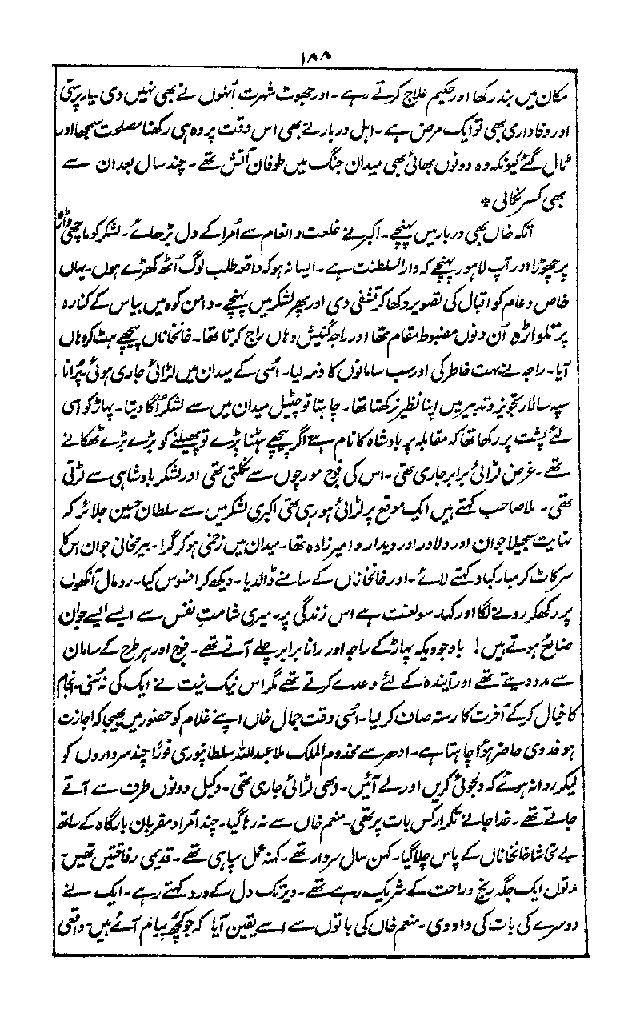 ۱۸۸
مکان میں بند رکھا اور حکیم علاج کرتے رہے۔ اور جھوٹ شہرت اُنہوں نے بھی نہیں دی۔ یار پرستی
اور وفاداری بھی تو ایک مرض ہے۔ اہل دربار نے بھی اس وقت پردہ ہی رکھنا مصلحت سمجھا اور
ٹال گئے کیونکہ وہ دونوں بھائی بھی میدان جنگ میں طوفان آتش تھے۔ چند سال بعد ان سے
بھی کسر نکالی *
اتکہ خاں بھی دربار میں پہنچے۔ اکبر نے خلعت و انعام سے اُمرا کے دل بڑھائے۔ لشکر کو ماچھی واڑہ
پر چھوڑا اور آپ لاہور پہنچے کہ دار السلطنت ہے۔ ایسا نہ ہو کہ واقعہ طلب لوگ اُٹھ کھڑے ہوں۔ یہاں
خاص و عام کو اقبال کی تصویر دکھا کر تشفی دی اور پھر لشکر میں پہنچے۔ دامن کوہ میں بیاس کے کنارہ
پر تلواڑہ اُن دنوں مضبوط مقام تھا اور راجہ گنیش وہاں راج کرتا تھا۔ خانخاناں پیچھے ہٹ کر وہاں
آیا۔ راجہ نے بہت خاطر کی اور سب سامانوں کا ذمہ لیا۔ اُسی کے میدان میں لڑائی جاری ہوئی۔ پرانا
سپہ سالار تجویز و تدبیر میں اپنا نظیر نہ رکھتا تھا۔ چاہتا تو چٹیل میدان میں سے لشکر لگا دیتا۔ پہاڑ کو اسی
لئے پشت پر رکھا تھا کہ مقابلہ پر بادشاہ کا نام ہے اگر پیچھے ہٹنا پڑے تو پھیلنے کو بڑے بڑے ٹھکانے
تھے۔ غرض لڑائی برابر جاری تھی۔ اس کی فوج مورچوں سے نکلتی تھی اور لشکر بادشاہی سے لڑتی
تھی۔ ملا صاحب کہتے ہیں ایک موقع پر لڑائی ہو رہی تھی اکبری لشکر میں سے سلطان حسین جلائر کہ
نہایت سجیلا جوان اور دلاور اور دیدارو امیر زادہ تھا۔ میدان میں زخمی ہو کر گرا۔ بیرم خانی جوان اس کا
سر کاٹ کر مبارکباد کہتے لائے۔ اور خانخاناں کے سامنے ڈال دیا۔ دیکھ کر افسوس کیا۔ رومال آنکھوں
پر رکھ کر رونے لگا اور کہا۔ سو لعنت ہے اس زندگی پر۔ میری شامتِ نفس سے ایسے ایسے جوان
ضایع ہوتے ہیں! باوجودیکہ پہاڑ کے راجہ اور رانا برابر چلے آتے تھے۔ فوج اور ہر طرح کے سامان
سے مدد دیتے تھے اور آیندہ کے لئے وعدے کرتے تھے مگر اس نیک نیت نے ایک کی نہ سُنی۔ انجام
کا خیال کر کے آخرت کا رستہ صاف کر لیا۔ اُسی وقت جمال خاں اپنے غلام کو حضور میں بھیجا کہ اجازت
ہو فدوی حاضر ہوا چاہتا ہے۔ ادھر سے مخدوم الملک ملا عبداللہ سلطانپوری فوراً چند سرداروں کو
لیکر روانہ ہوئے کہ دلجوئی کریں اور لے آئیں۔ ابھی لڑائی جاری تھی۔ وکیل دونوں طرف سے آتے
جاتے تھے۔ خدا جانے تکرار کس بات پر تھی۔ منعم خاں سے نہ رہا گیا۔ چند اُمرا و مقربان بارگاہ کے ساتھ
بے تحاشا خانخاناں کے پاس چلا گیا۔ کہن سال سردار تھے۔ کہنہ عمل سپاہی تھے۔ قدیمی رفاقتیں تھیں
مدتوں ایک جگہ رنج و راحت کے شریک رہے تھے۔ دیر تک دل کے درد کہتے رہے۔ ایک نے
دوسرے کی بات کی داد دی۔ منعم خاں کی باتوں سے اسے یقین آیا کہ جو کچھ پیام آئے ہیں۔ واقعی